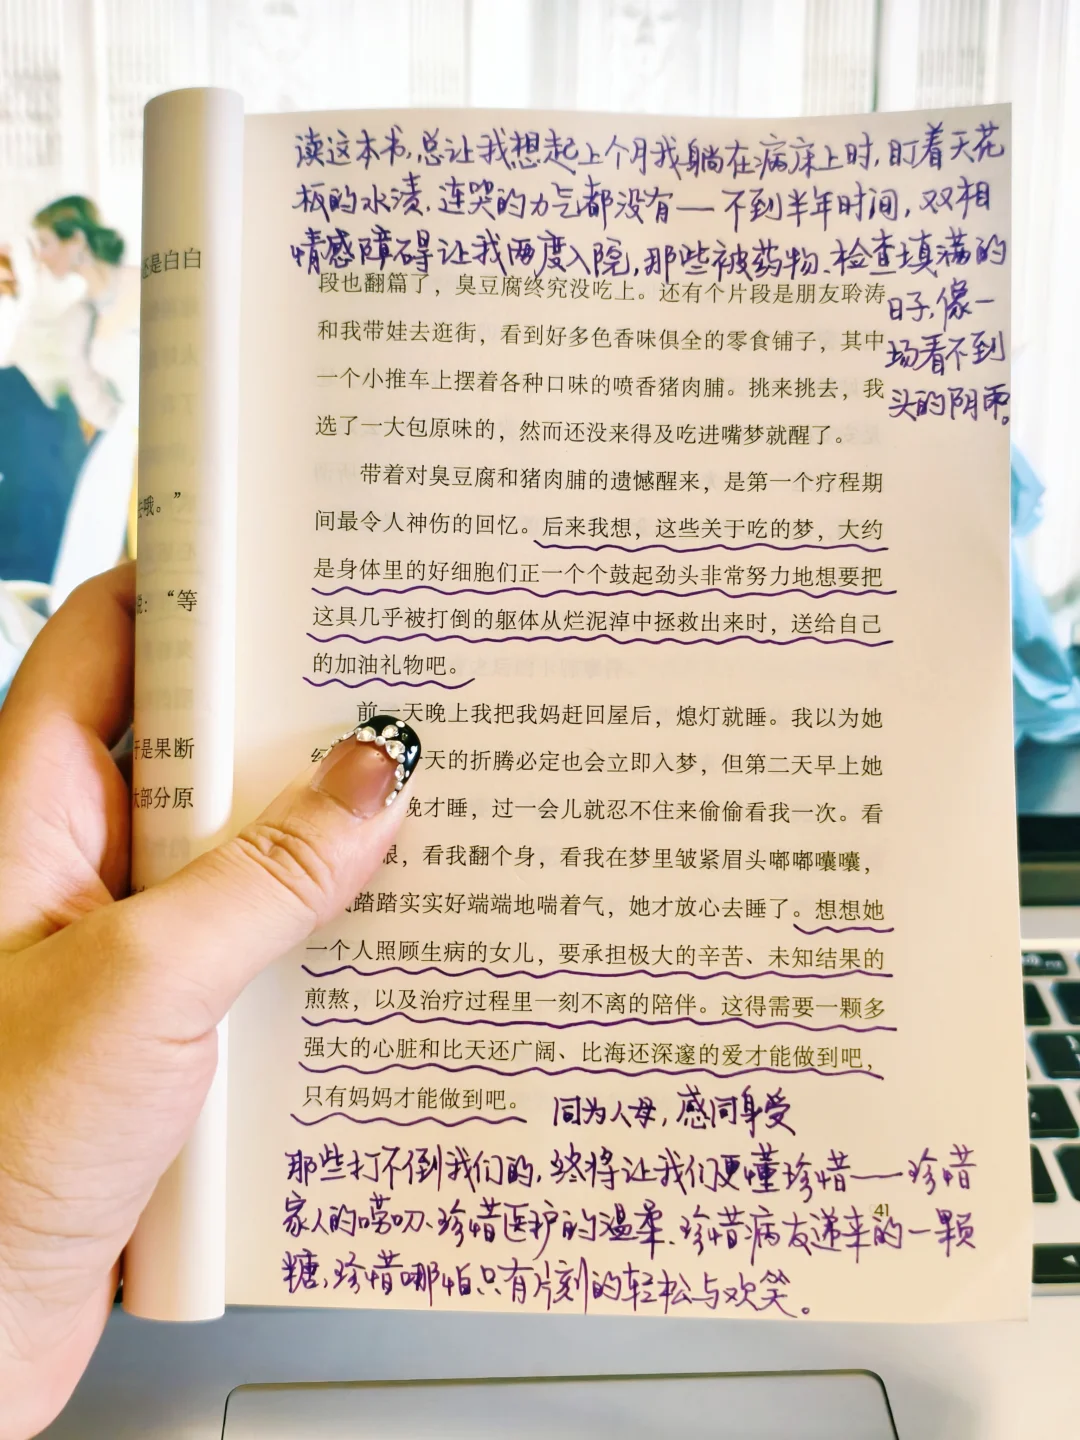 读这本书,总让我想起上个月我躺在病床上时,盯着天花
板的水渍,连哭的力气都没有——不到半年时间,双相
情感障碍让我两度入院,那些被药物、检查填满的
日子,像一
场看不到
头的阴雨。
还是白白
哦。”
“等
是果断
大部分原
段也翻篇了，臭豆腐终究没吃上。还有个片段是朋友聆涛
和我带娃去逛街，看到好多色香味俱全的零食铺子，其中
一个小推车上摆着各种口味的喷香猪肉脯。挑来挑去，我
选了一大包原味的，然而还没来得及吃进嘴梦就醒了。
带着对臭豆腐和猪肉脯的遗憾醒来，是第一个疗程期
间最令人神伤的回忆。后来我想，这些关于吃的梦，大约
是身体里的好细胞们正一个个鼓起劲头非常努力地想要把
这具几乎被打倒的躯体从烂泥淖中拯救出来时，送给自己
的加油礼物吧。
前一天晚上我把我妈赶回屋后，熄灯就睡。我以为她
天的折腾必定也会立即入梦，但第二天早上她
晚才睡，过一会儿就忍不住来偷偷看我一次。看
，看我翻个身，看我在梦里皱紧眉头嘟嘟囔囔，
踏踏实实好端端地喘着气，她才放心去睡了。想想她
一个人照顾生病的女儿，要承担极大的辛苦、未知结果的
煎熬，以及治疗过程里一刻不离的陪伴。这得需要一颗多
强大的心脏和比天还广阔、比海还深邃的爱才能做到吧，
只有妈妈才能做到吧。 同为人母,感同身受
那些打不倒我们的,终将让我们更懂珍惜——珍惜
家人的唠叨、珍惜医护的温柔、珍惜病友递来的一颗
糖,珍惜哪怕只有片刻的轻松与欢笑。
41